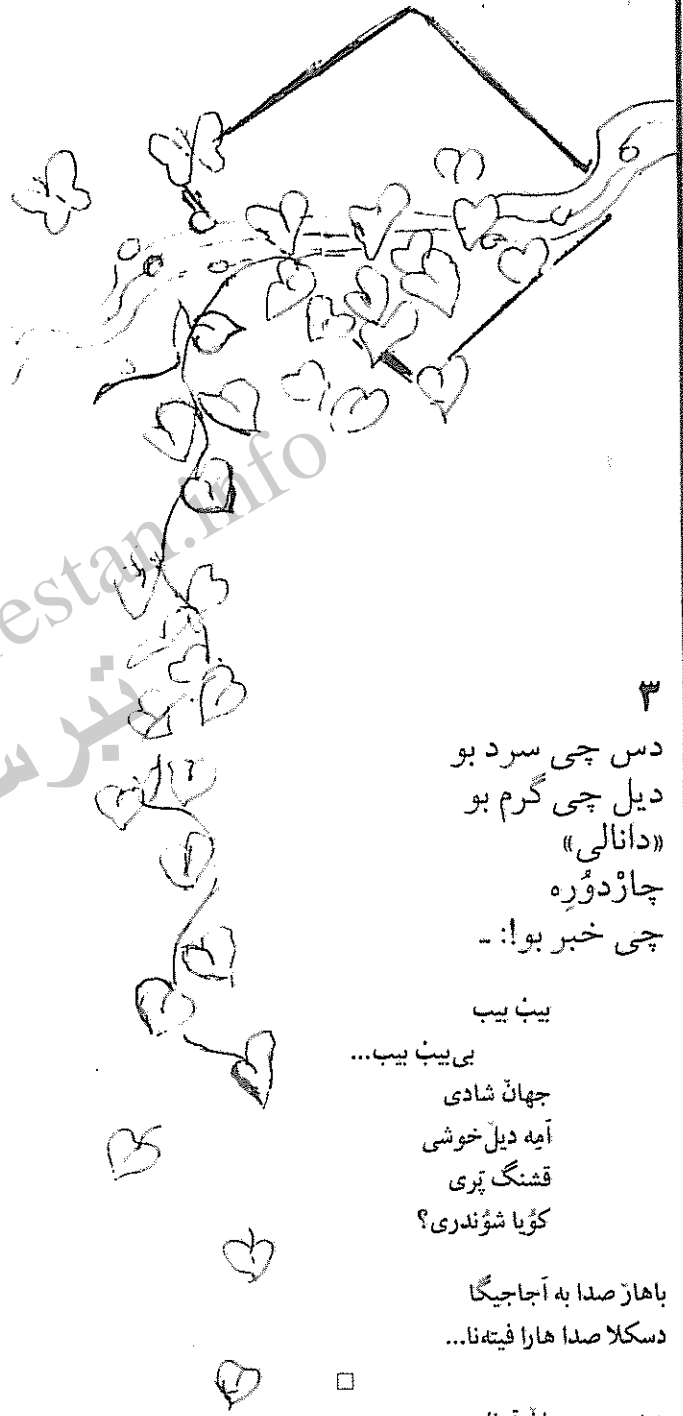 ۳
دس چی سرد بو
دیل چی گرم بو
«دانالی»
چاردوُرِه
چی خبر بو!: ـ
بیبْ بیب
بی‌بیبْ بیب...
جهانْ شادی
اَمِه دیلْ خوشی
قشنگ پَری
کوُیا شوُندری؟
باهارْ صدا به آجاجیگا
دسکلا صدا هارا فیته‌نا...
estan.info
تبرس